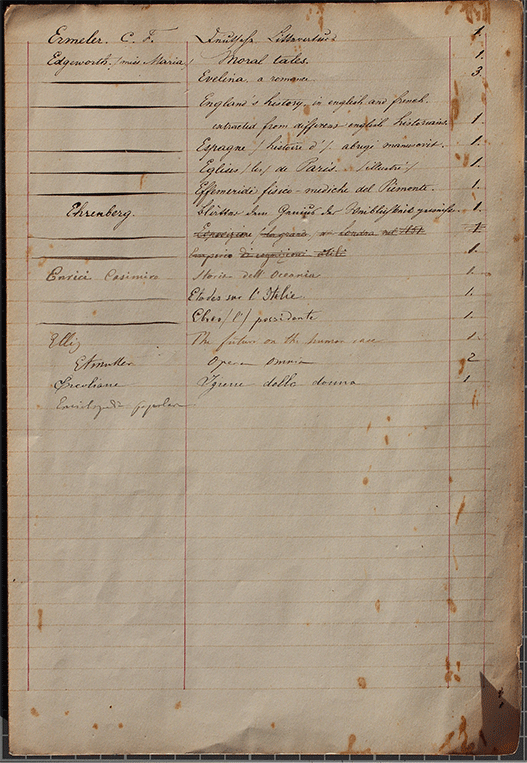 Ermeler. C. F. Deutsche Litteratur 1.
Edgeworth /miss Maria/ Moral tales. 1.
Evelina a romance 3.
England's history in english and french.
extracted from different english historians. 1.
Espagne / histoire d'/ abrégé manuscrit. 1.
Eglises /les/ de Paris. /illustré/ 1.
Effemeridi fisico-mediche del Piemonte. 1.
Ehrenberg. dem Genius der 1.
Londra nel 1851 1.
Emporio di cognizioni utili 1.
Enrici Casimiro Storia dell'Oceania 1.
Etudes sur l'Italie. 1.
/l'/ presidente 1.
Ellis The future on the human race 1.
Etmuller Opera Omnia 2
Ercoliani Igiene della donna 1.
Enciclopedia popolare